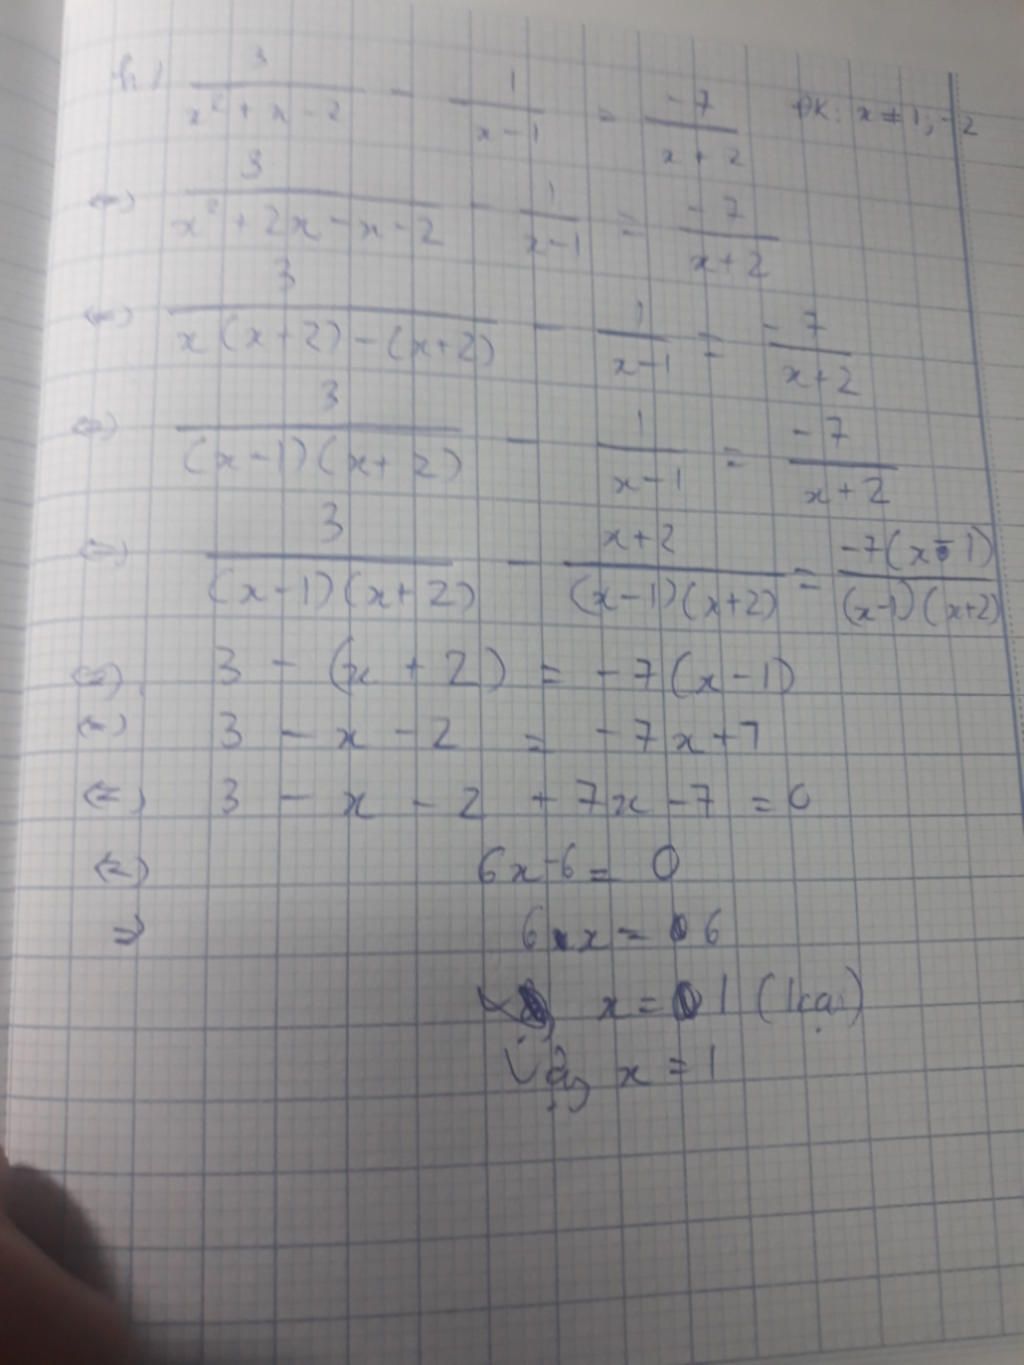 h) 3/(x² + x - 2) - 1/(x - 1) = -7/(x + 2) ĐK: x ≠ 1; -2
(=) 3/(x² + 2x - x - 2) - 1/(x - 1) = -7/(x + 2)
(=) 3/(x(x + 2) - (x + 2)) - 1/(x - 1) = -7/(x + 2)
(=) 3/((x - 1)(x + 2)) - 1/(x - 1) = -7/(x + 2)
(=) 3/((x - 1)(x + 2)) - (x + 2)/((x - 1)(x + 2)) = -7(x - 1)/((x - 1)(x + 2))
(=) 3 - (x + 2) = -7(x - 1)
(=) 3 - x - 2 = -7x + 7
(=) 3 - x - 2 + 7x - 7 = 0
(=) 6x - 6 = 0
=> 6x = 6
x = 1 (loại)
Vậy x = 1